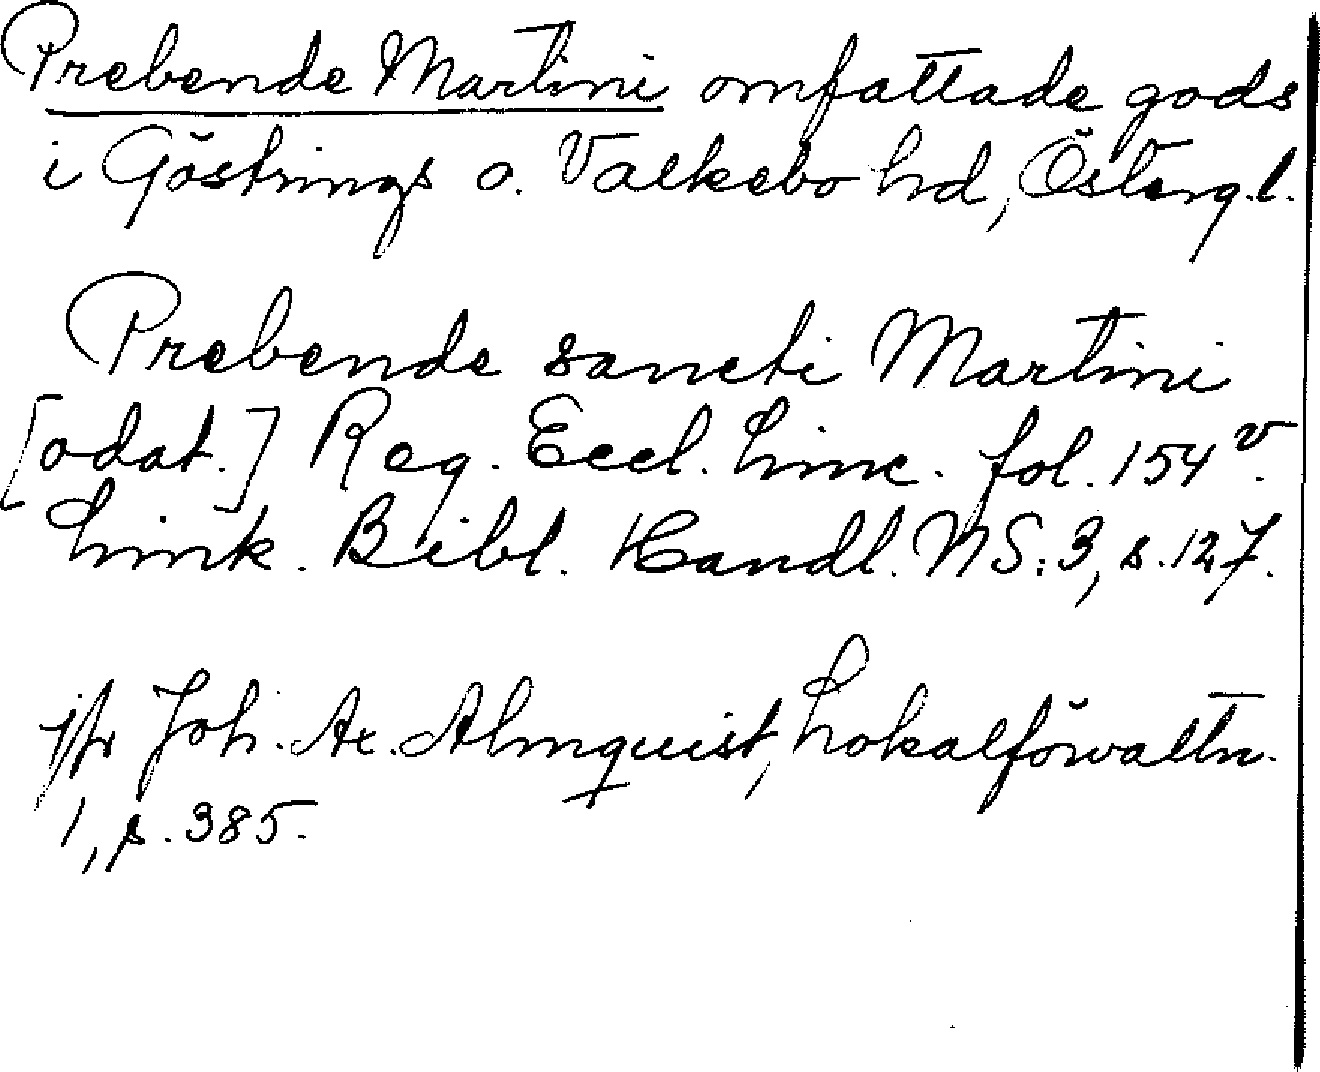 Prebende Martini omfattade gods
i Göstrings o. Valkebo hd, Österg.l.
Prebende sancti Martini
[odat.] Reg. Eccl. Linc. fol. 154 v.
Link. Bibl. Handl. NS: 3, s. 127.
jfr Joh. Ax. Almquist, Lokalförvaltn.
1, s. 385.